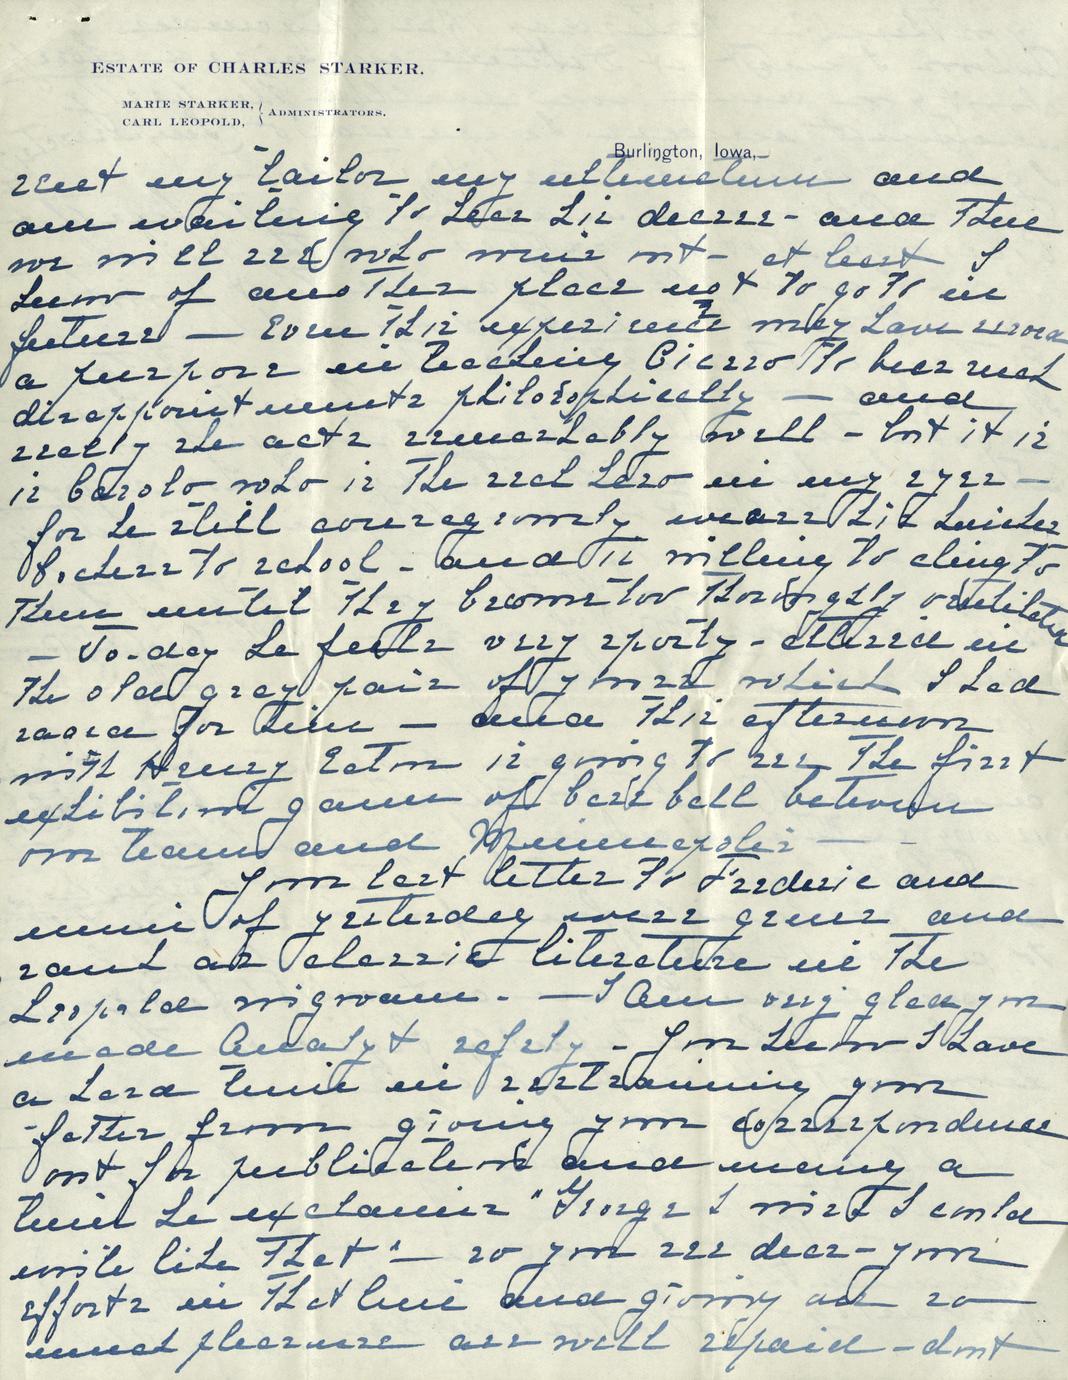 ESTATE OF CHARLES STARKER.
MARIE STARKER,
CARL LEOPOLD, } ADMINISTRATORS.
Burlington, Iowa,
sent my tailor my ultimatum and
am waiting to hear his decree - and then
we will see who wins out - at least I
know of another place not to go to in
future — Even this experience may have served
a purpose in teaching to bear such
disappointments philosophically — and
really she acts remarkably well - but it is
is Carolo who is the real hero in my eyes —
for he still courageously wears his
to school - and is willing to cling to
them until they become too thoroughly ventilated
— To-day he feels very sporty - attired in
the old gray pair of yours which I had
for him — and this afternoon
with Henry Eaton is going to see the first
exhibition game of base ball between
our team and Minneapolis —
Your last letter to Frederic and
mine of yesterday were gems and
rank as classic literature in the
Leopold wigwam. — I am very glad you
made safely - You know I have
a hard time in restraining your
father from giving your correspondence
out for publication and many a
time he exclaims "George I wish I could
write like that" — so you see dear - your
efforts in that line and giving us so
much pleasure are well repaid - don't